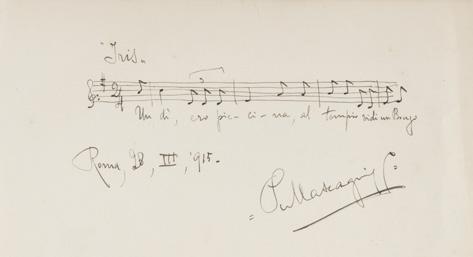 "Iris"
Un dì, ero pic-ci-na, al tempio vidi un Bonzo
Roma, 28, III, '915.-
=PMascagni=